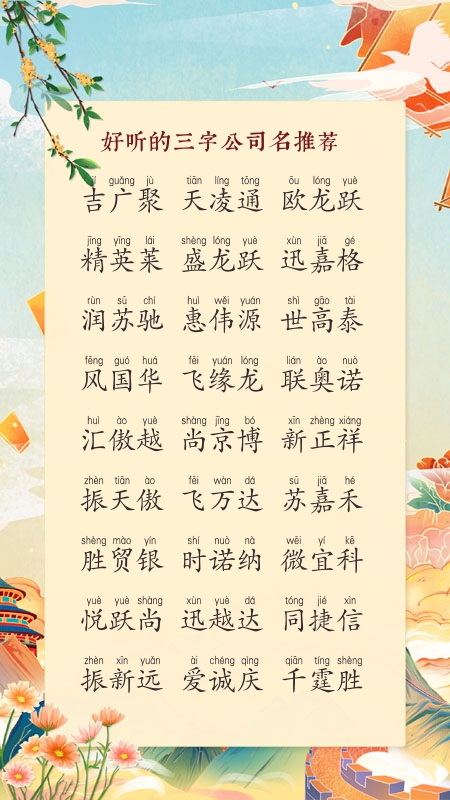 好听的三字公司名推荐
jí guǎng jù tiān líng tōng ōu lóng yuè
吉广聚 天凌通 欧龙跃
jīng yīng lái shèng lóng yuè xùn jiā gé
精英莱 盛龙跃 迅嘉格
rùn sū chí huì wěi yuán shì gāo tài
润苏驰 惠伟源 世高泰
fēng guó huá fēi yuán lóng lián ào nuò
风国华 飞缘龙 联奥诺
huì ào yuè shàng jīng bó xīn zhèng xiáng
汇傲越 尚京博 新正祥
zhèn tiān ào fēi wàn dá sū jiā hé
振天傲 飞万达 苏嘉禾
shèng mào yín shí nuò nà wēi yí kē
胜贸银 时诺纳 微宜科
yuè yuè shàng xùn yuè dá tóng jié xìn
悦跃尚 迅越达 同捷信
zhèn xīn yuǎn ài chéng qìng qiān tíng shèng
振新远 爱诚庆 千霆胜